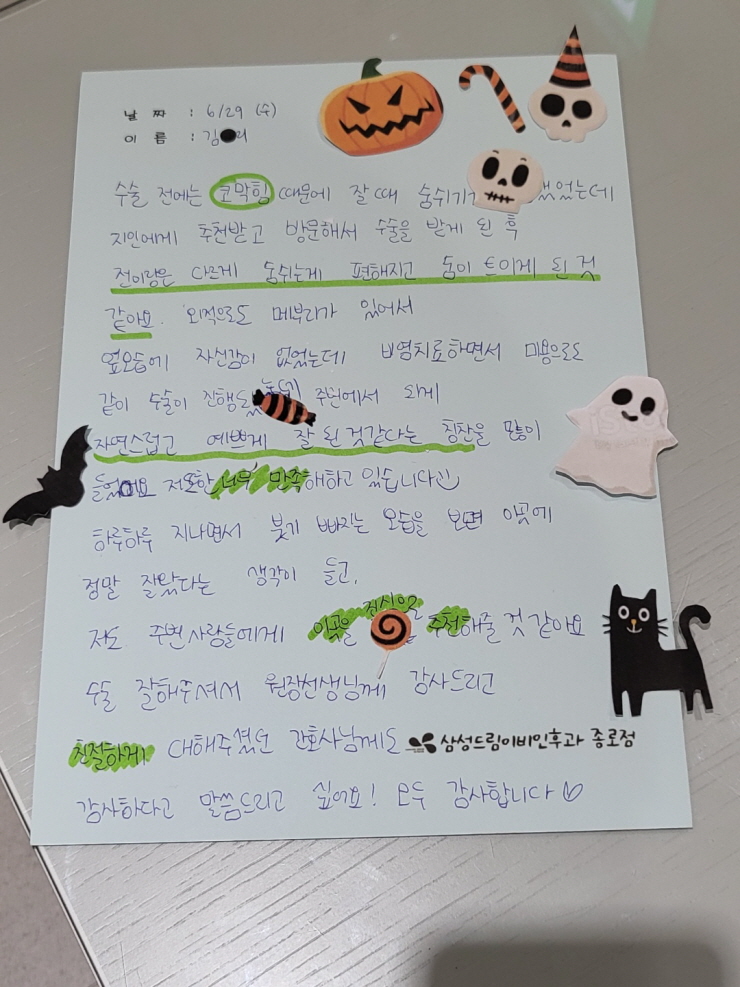 날 짜 : 6/29 (수)
이 름 : 김 리
수술 전에는 코막힘 때문에 잘 때 숨쉬기가 했었는데
지인에게 추천받고 방문해서 수술을 받게 된 후
전이랑은 다르게 숨쉬는게 편해지고 숨이 트이게 된 것
같아요. 외적으로도 메부리가 있어서
옆모습에 자신감이 없었는데 비염치료하면서 미용으로도
같이 수술이 진행 주변에서 되게
자연스럽고 예쁘게 잘 된 것같다는 칭찬을 많이
들었어요 저또한 너무 만족해하고 있습니다
하루하루 지나면서 붓기 빠지는 모습을 보면 이곳에
정말 잘왔다는 생각이 들고,
저도 주변사람들에게 이곳을 추천해줄 것 같아요
수술 잘해주셔서 원장선생님께 감사드리고
친절하게 대해주셨던 간호사님께도 삼성드림이비인후과 종로점
감사하다고 말씀드리고 싶어요! 모두 감사합니다♡